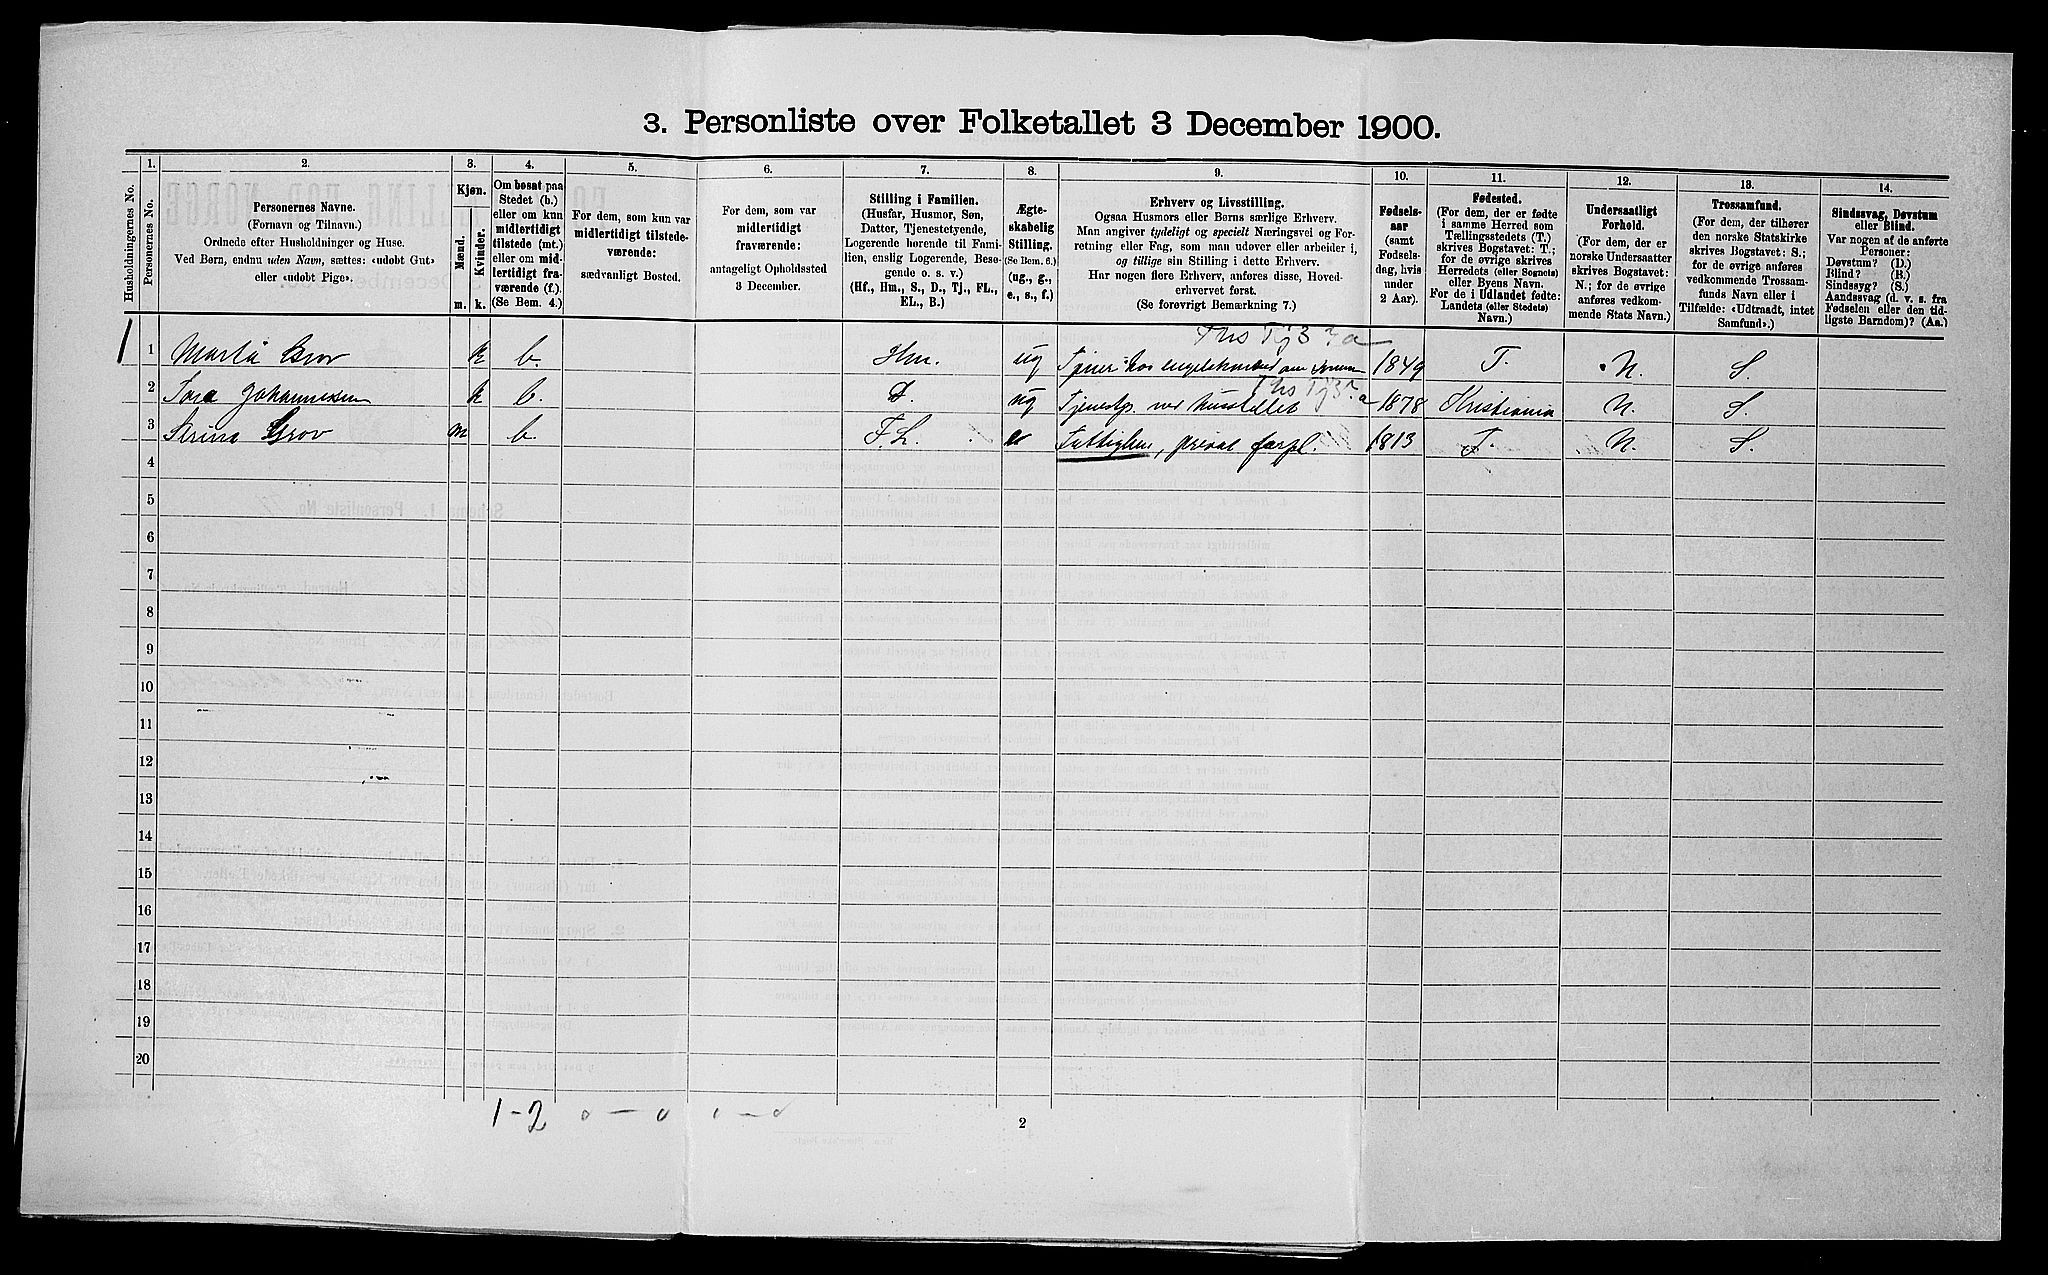 3. Personliste over Folketallet 3 December 1900.
Husholdningernes No.
1.
Personernes No.
2.
Personernes Navne.
(Fornavn og Tilnavn.)
Ordnede efter Husholdninger og Huse.
Ved Børn, endnu uden Navn, sættes: «udøbt Gut»
eller «udøbt Pige».
3.
Kjøn.
Mænd.
Kvinder.
m.
k.
4.
Om bosat paa
Stedet (b.)
eller om kun
midlertidigt
tilstede (mt.)
eller om mid-
lertidigt fra-
værende (f.).
(Se Bem. 4.)
5.
For dem, som kun var
midlertidigt tilstede-
værende:
sædvanligt Bosted.
6.
For dem, som var
midlertidigt
fraværende:
antageligt Opholdssted
3 December.
7.
Stilling i Familien.
(Husfar, Husmor, Søn,
Datter, Tjenestetyende,
Logerende hørende til Fami-
lien, enslig Logerende, Besø-
gende o. s. v.)
(Hf., Hm., S., D., Tj., FL.,
EL., B.)
8.
Ægte-
skabelig
Stilling.
(Se Bem. 6.)
(ug., g.,
e., s., f.)
9.
Erhverv og Livsstilling.
Ogsaa Husmors eller Børns særlige Erhverv.
Man angiver tydeligt og specielt Næringsvei og For-
retning eller Fag, som man udøver eller arbeider i,
og tillige sin Stilling i dette Erhverv.
Har nogen flere Erhverv, anføres disse, Hoved-
erhvervet først.
(Se forøvrigt Bemærkning 7.)
10.
Fødsels-
aar
(samt
Fødsels-
dag, hvis
under
2 Aar).
11.
Fødested.
(For dem, der er fødte
i samme Herred som
Tællingsstedets (T.)
skrives Bogstavet: T.;
for de øvrige skrives
Herredets (eller Sognets)
eller Byens Navn.
For de i Udlandet fødte:
Landets (eller Stedets)
Navn.)
12.
Undersaatligt
Forhold.
(For dem, der er
norske Undersaatter
skrives Bogstavet:
N.; for de øvrige
anføres vedkom-
mende Stats Navn.)
13.
Trossamfund.
(For dem, der tilhører
den norske Statskirke
skrives Bogstavet: S.;
for de øvrige anføres
vedkommende Trossam-
funds Navn eller i
Tilfælde: «Udtraadt, intet
Samfund».)
14.
Sindssvag, Døvstum
eller Blind.
Var nogen af de anførte
Personer:
Døvstum? (D.)
Blind? (B.)
Sindssyg? (S.)
Aandssvag (d. v. s. fra
Fødselen eller den tid-
ligste Barndom)? (Aa.)
1 1 Marta Grov k b. Hm. ug 1849 T. N. S.
2 Tora Johannesen k b. D. ug Tjenestp. ved husstellet 1878 Kristiania N. S.
3 Grov m b F.L. e Fattiglem, privat forpl. 1813 T. N. S.
4
5
6
7
8
9
10
11
12
13
14
15
16
17
18
19
20
1-2 0-0 0-0
2